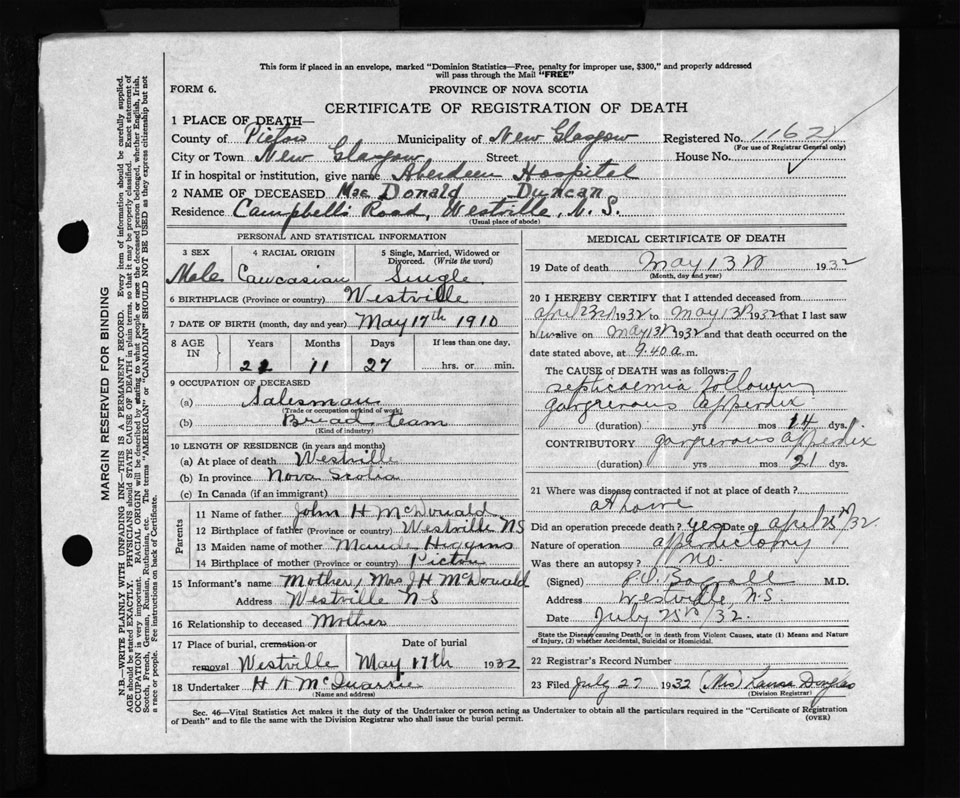 This form if placed in an envelope, marked "Dominion Statistics—Free, penalty for improper use, $300," and properly addressed
will pass through the Mail "FREE"
FORM 6.
PROVINCE OF NOVA SCOTIA
CERTIFICATE OF REGISTRATION OF DEATH
1 PLACE OF DEATH—
County of Pictou Municipality of New Glasgow Registered No. 1162
(For use of Registrar General only)
City or Town New Glasgow Street House No.
If in hospital or institution, give name Aberdeen Hospital
2 NAME OF DECEASED Mac Donald Duncan
Residence Campbell's Road, Westville, N.S.
(Usual place of abode)
MARGIN RESERVED FOR BINDING
N.B.—WRITE PLAINLY WITH UNFADING INK—THIS IS A PERMANENT RECORD. Every item of information should be carefully supplied.
AGE should be stated EXACTLY. PHYSICIANS should STATE CAUSE OF DEATH in plain terms, so that it may be properly classified. Exact statement of
OCCUPATION is very important. RACIAL ORIGIN will be described by stating to what people or race the deceased person belonged, whether English, Irish,
Scotch, French, German, Russian, Ruthenian, etc. The terms "AMERICAN" or "CANADIAN" SHOULD NOT BE USED as they express citizenship but not
a race or people. See instructions on back of Certificate.
PERSONAL AND STATISTICAL INFORMATION
3 SEX
Male
4 RACIAL ORIGIN
Caucasian
5 Single, Married, Widowed or
Divorced. (Write the word)
Single
6 BIRTHPLACE (Province or country) Westville
7 DATE OF BIRTH (month, day and year) May 17th 1910
8 AGE
IN
Years Months Days If less than one day.
11 27 hrs. or min.
9 OCCUPATION OF DECEASED
(a) Salesman
(Trade or occupation or kind of work)
(b) Bread team
(Kind of industry)
10 LENGTH OF RESIDENCE (in years and months)
(a) At place of death Westville
(b) In province Nova Scotia
(c) In Canada (if an immigrant)
Parents
11 Name of father John H McDonald
12 Birthplace of father (Province or country) Westville NS
13 Maiden name of mother Maude Higgins
14 Birthplace of mother (Province or country) Pictou
15 Informant's name Mother, Mrs J H McDonald
Address Westville N-S
16 Relationship to deceased Mother
17 Place of burial, cremation or Date of burial
removal Westville May 17th 1932
18 Undertaker H A McQuarrie
(Name and address)
MEDICAL CERTIFICATE OF DEATH
19 Date of death May 13th 1932
(Month, day and year)
20 I HEREBY CERTIFY that I attended deceased from
1932 to May 13th 1932 that I last saw
him alive on May 13th 1932 and that death occurred on the
date stated above, at 9.40 a.m.
The CAUSE of DEATH was as follows:
septicaemia following
gangrenous appendix
(duration) yrs mos 14 dys.
CONTRIBUTORY gangrenous appendix
(duration) yrs mos 21 dys.
21 Where was disease contracted if not at place of death?
at home
Did an operation precede death? yes Date of April 23rd/32.
Nature of operation appendictomy
Was there an autopsy? no.
(Signed) M.D.
Address Westville, N.S.
Date July 25th/32.
State the Disease causing Death, or in death from Violent Causes, state (1) Means and Nature
of Injury, (2) whether Accidental, Suicidal or Homicidal.
22 Registrar's Record Number
23 Filed July 27 1932 (Mrs) Douglas
(Division Registrar)
Sec. 46—Vital Statistics Act makes it the duty of the Undertaker or person acting as Undertaker to obtain all the particulars required in the "Certificate of Registration
of Death" and to file the same with the Division Registrar who shall issue the burial permit.
(OVER)